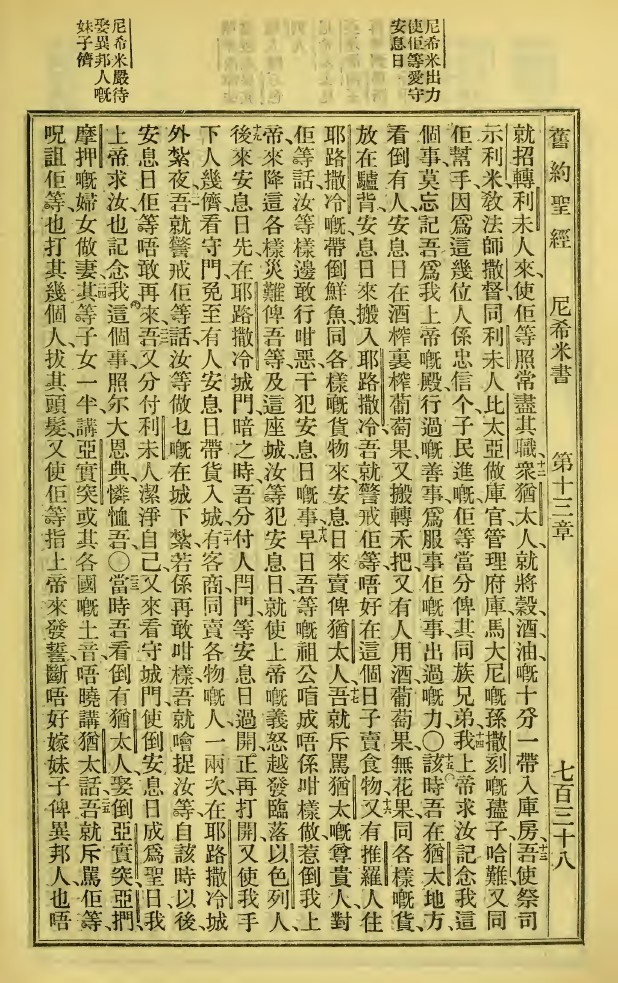 尼希米出力
使佢等愛守
安息日
尼希米嚴待
娶異邦人嘅
妹子儕
舊約聖經 尼希米書 第十三章 七百三十八
就招轉利未人來、使佢等照常盡其職、十二衆猶太人、就將穀、酒、油嘅十分一帶入庫房、十三吾使祭司
示利米、敎法師撒督、同利未人比太亞做庫官管理府庫、馬大尼嘅孫、撒刻嘅子哈難、又同
佢幫手、因爲這幾位人係忠信个、子民進嘅佢等當分俾其同族兄弟、十四我上帝求汝記念我這
個事、莫忘記吾爲我上帝嘅殿行過嘅善事、爲服事佢嘅事出過嘅力、〇十五該時吾在猶太地方、
看倒有人安息日在酒榨裏榨葡萄果、又搬轉禾把、又有人用酒葡萄果無花果同各樣嘅貨、
放在驢背、安息日來搬入耶路撒冷、吾就警戒佢等、唔好在這個日子賣食物、十六又有推羅人往
耶路撒冷嘅、帶倒鮮魚、同各樣嘅貨物來、安息日來賣俾猶太人、十七吾就斥罵猶太嘅尊貴人、對
佢等話、汝等樣邊敢行咁惡、干犯安息日嘅事、十八早日吾等嘅祖公、唔成唔係咁樣做、惹倒我上
帝來降這各樣災難俾吾等、及這座城、汝等犯安息日、就使上帝嘅義怒、越發臨落以色列人、
十九後來安息日先、在耶路撒冷城門暗之時、吾分付人閂門、等安息日過開、正再打開、又使我手
下人幾儕看守門、免至有人安息日帶貨入城、二十有客商同賣各物嘅人、一兩次在耶路撒冷城
外紮夜、二一吾就警戒佢等話、汝等做乜嘅在城下紮、若係再敢咁樣、吾就噲捉汝等、自該時以後、
安息日佢等唔敢再來、二二吾又分付利未人潔淨自己、又來看守城門、使倒安息日成爲聖日、我
上帝求汝也記念我這個事、照尔大恩典憐恤吾、〇二三當時吾看倒有猶太人、娶倒亞實突、亞捫、
摩押嘅婦女做妻、二四其等子女一半講亞實突、或其各國嘅土音、唔曉講猶太話、二五吾就斥罵佢等、
呪詛佢等、也打其幾個人、拔其頭髮、又使佢等指上帝來發誓、斷唔好嫁妹子俾異邦人、也唔